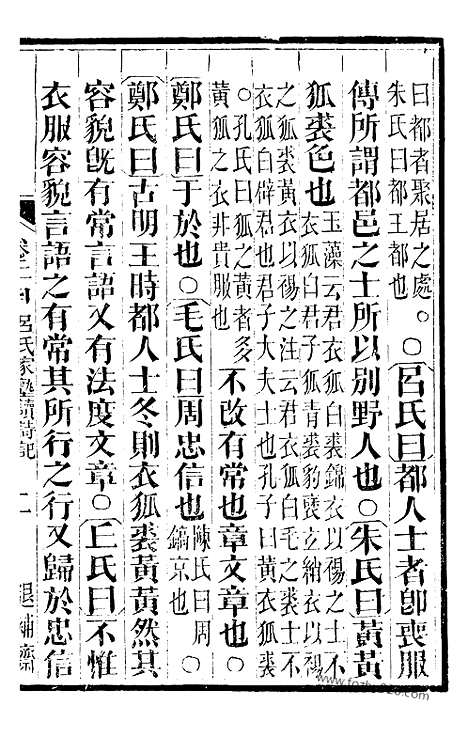 曰都者聚居之處
朱氏曰都王都也
○呂氏曰都人士者卽喪服
傳所謂都邑之士所以別野人也○朱氏曰黃黃
狐裘色也
玉藻云君衣狐白裘錦衣以裼之士不
衣狐白君子狐青裘豹褎玄綃衣以裼
之狐裘黃衣以裼之注云君衣狐白毛之裘士不
衣狐白辟君也君子大夫士也孔子曰黃衣狐裘
○孔氏曰狐之黃者多
黃狐之衣非貴服也
不改有常也章文章也○
鄭氏曰于於也○毛氏曰周忠信也
陳氏曰周
鎬京也
○
鄭氏曰古明王時都人士冬則衣狐裘黃黃然其
容貌旣有常言語又有法度文章○丘氏曰不惟
衣服容貌言語之有常其所行之行又歸於忠信
呂氏家塾讀詩記
退補齋
www.fozhu920.com